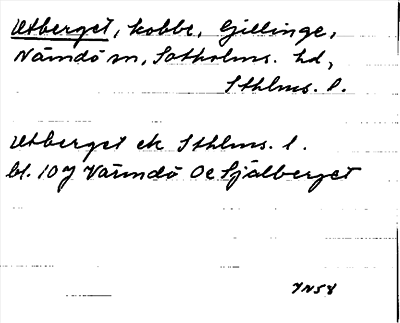 Utberget, kobbe, Gillinge,
Nämdö sn, Sotholms. hd,
Sthlms. l.
Utberget ek Sthlms. l.
bl. 10J Värmdö Oc Själberget
JN58